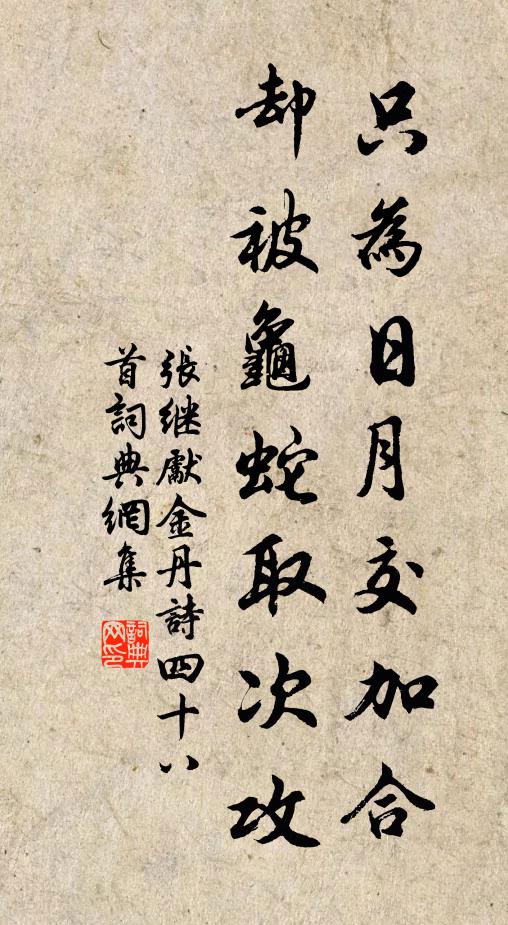 只為日月交加合
却被龜蛇取次攻
張继獻金丹詩四十八
首詞典網集
詞典网印